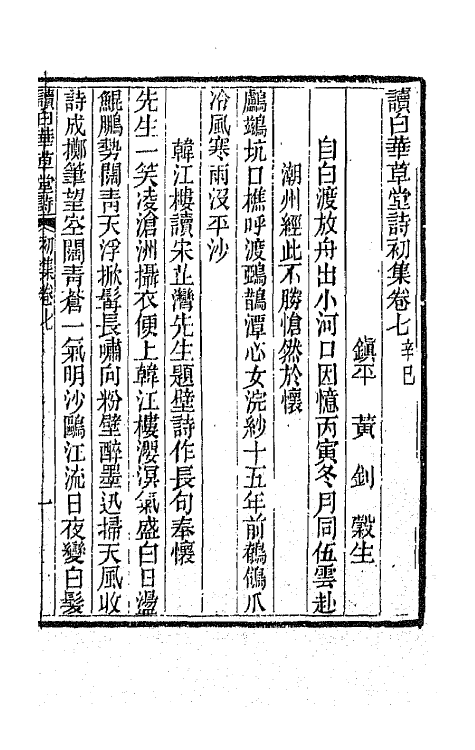 讀白華草堂詩初集卷七 辛巳
鎭平 黃 釗 榖生
自白渡放舟出小河口因憶丙寅冬月同伍雲赴
潮州經此不勝愴然於懷
鸕鷀坑口樵呼渡鵶鵲潭心女浣紗十五年前鵂鶹爪
冷風寒雨沒平沙
韓江樓讀宋芷灣先生題壁詩作長句奉懷
先生一笑凌滄洲攝衣便上韓江樓瀴溟氣盛白日盪
鯤鵬勢闊靑天浮掀髥長嘯向粉壁醉墨迅掃天風收
詩成擲筆望空闊靑蒼一氣明沙鷗江流日夜變白髮
讀白華草堂詩 初集卷七 一